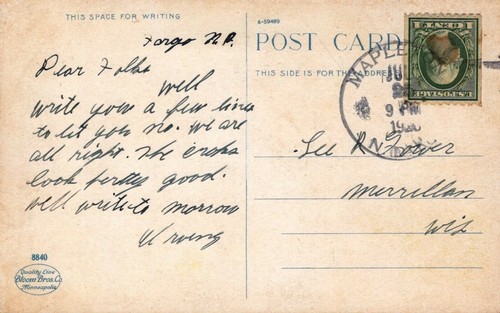 THIS SPACE FOR WRITING
A-59489
Fargo N.D.
POST CARD
THIS SIDE IS FOR THE ADDRESS
Dear Folks
well
write you a few lines
to let you no. we are
all right. The crops
look pretty good.
well write to morrow
Irving
MAPLE
JUL
2
9 PM
N. D.
U.S. POSTAGE
1 CENT 1
Lee R
Merrillan
Wis
8840
Quality Line
Bloom Bros. Co.
Minneapolis